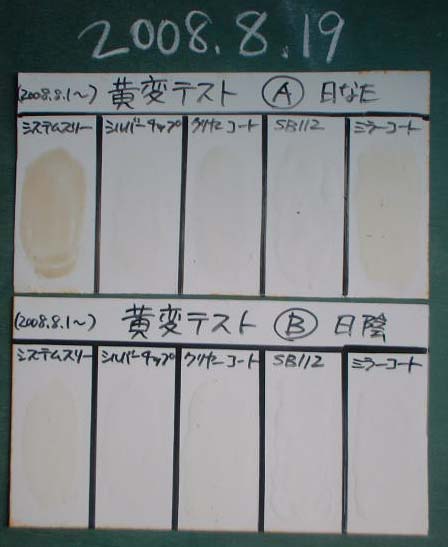 2008.8.19
(2008.8.1~) 黄変テスト Ⓐ 日なた
システムスリー シルバーチップ クリヤーコート SB112 ミラーコート
(2008.8.1~) 黄変テスト Ⓑ 日陰
システムスリー シルバーチップ クリヤーコート SB112 ミラーコート